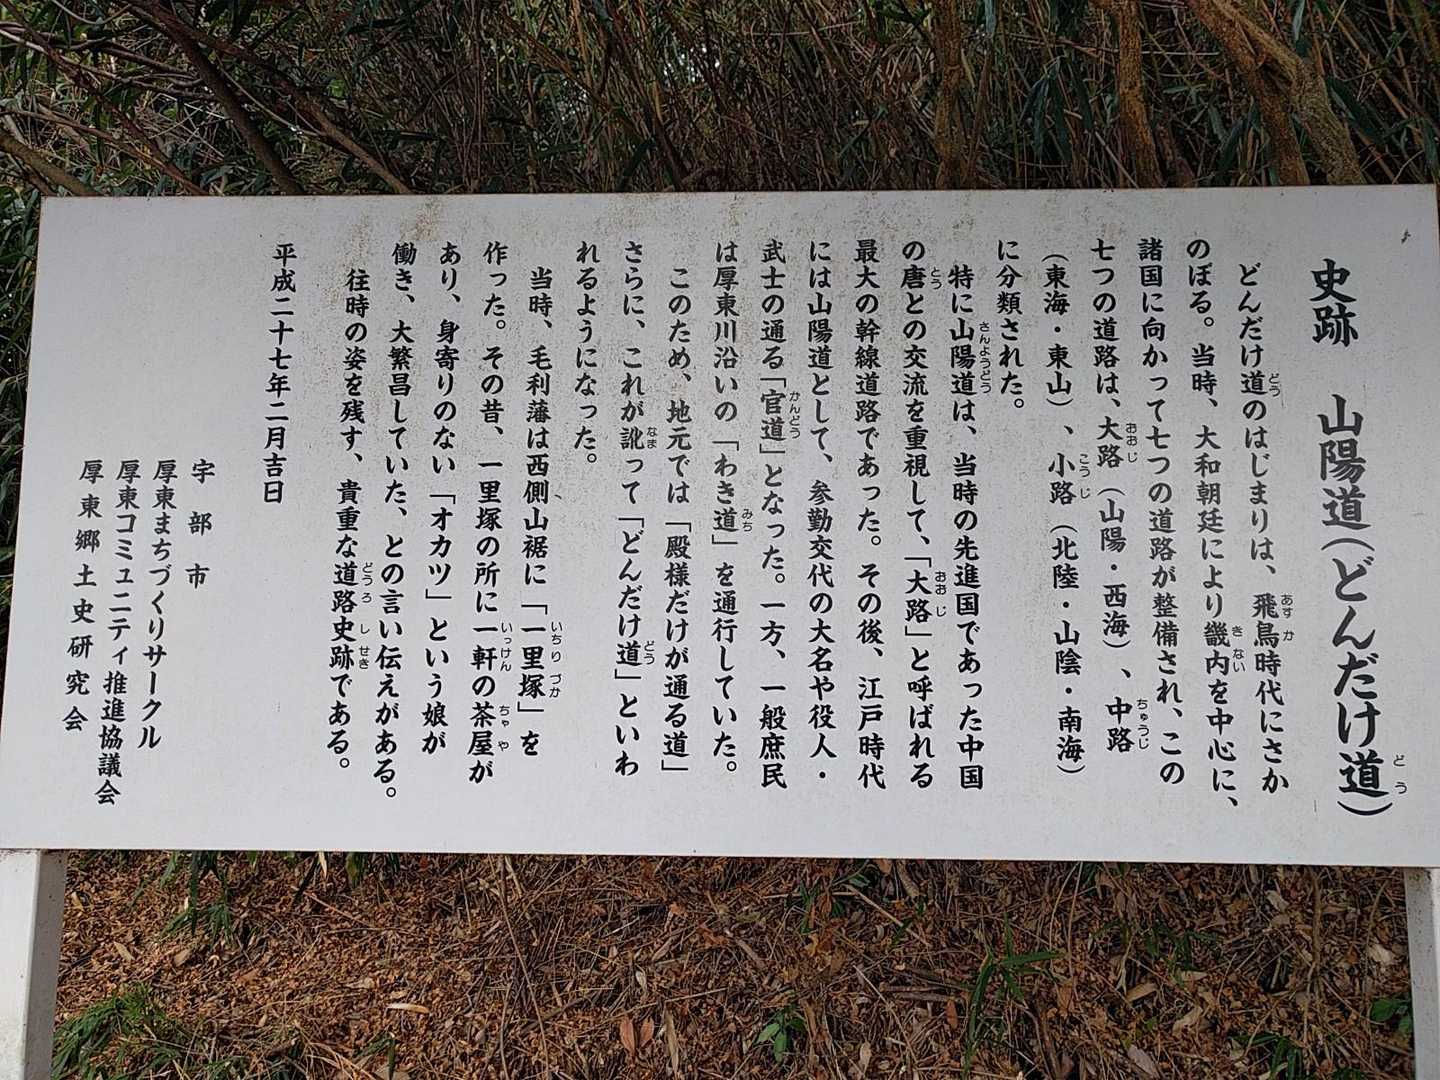 史跡　山陽道(どんだけ道)
どんだけ道のはじまりは、飛鳥時代にさか
のぼる。当時、大和朝廷により畿内を中心に、
諸国に向かって七つの道路が整備され、この
七つの道路は、大路(山陽・西海)、中路
(東海・東山)、小路(北陸・山陰・南海)
に分類された。
特に山陽道は、当時の先進国であった中国
の唐との交流を重視して、「大路」と呼ばれる
最大の幹線道路であった。その後、江戸時代
には山陽道として、参勤交代の大名や役人・
武士の通る「官道」となった。一方、一般庶民
は厚東川沿いの「わき道」を通行していた。
このため、地元では「殿様だけが通る道」
さらに、これが訛って「どんだけ道」といわ
れるようになった。
当時、毛利藩は西側山裾に「一里塚」を
作った。その昔、一里塚の所に一軒の茶屋が
あり、身寄りのない「オカツ」という娘が
働き、大繁昌していた、との言い伝えがある。
往時の姿を残す、貴重な道路史跡である。
平成二十七年二月吉日
宇部市
厚東まちづくりサークル
厚東コミュニティ推進協議会
厚東郷土史研究会